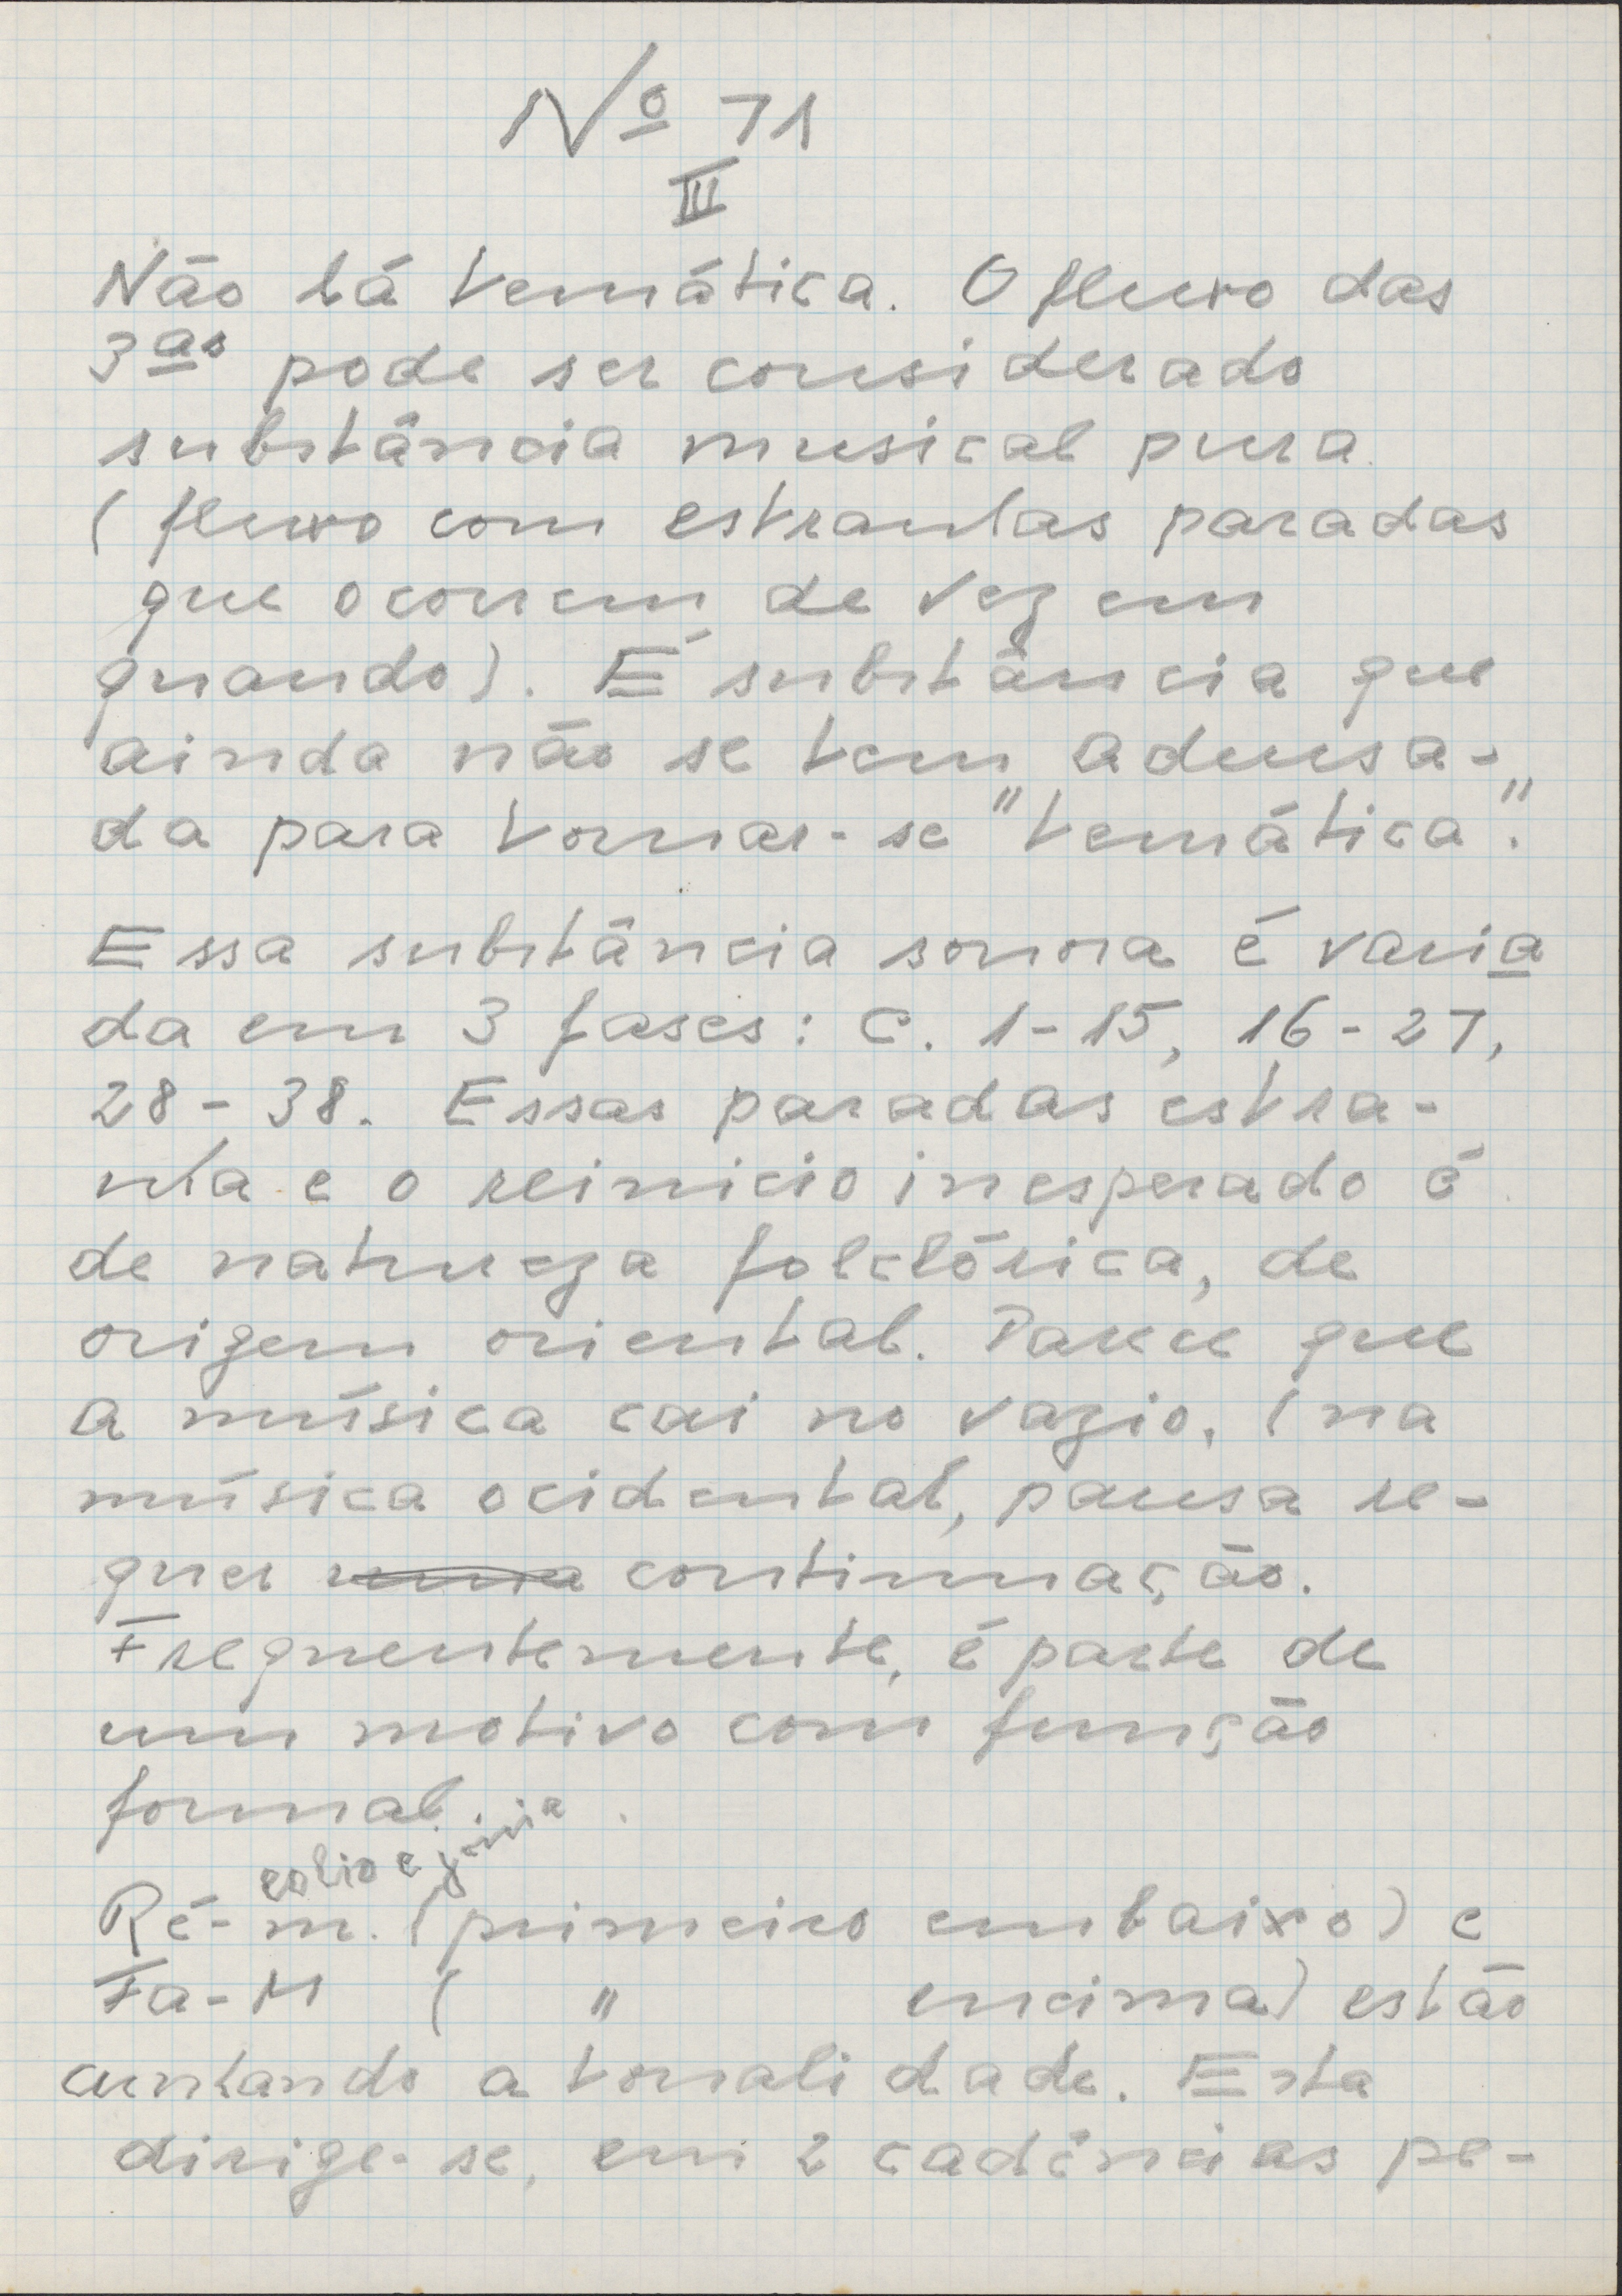 Nº 71
III
Não há temática. O fluxo das
3ªs pode ser considerado
substância musical pura
(fluxo com estranhas paradas
que ocorrem de vez em
quando). É substância que
ainda não se tem adensa-
da para tornar-se "temática".
Essa substância sonora é varia
da em 3 fases: C. 1-15, 16-27,
28-38. Essas paradas estra-
nha e o reinicio inesperado é
de natureza folclórica, de
origem oriental. Parece que
a música cai no vazio, (na
música ocidental, pausa re-
quer uma continuação.
Frequentemente, é parte de
um motivo com função
formal.
eolio e
Ré-m. (primeiro embaixo) e
Fa-M ( " encima) estão
cunhando a tonalidade. Esta
dirige-se, em 2 cadências pe-